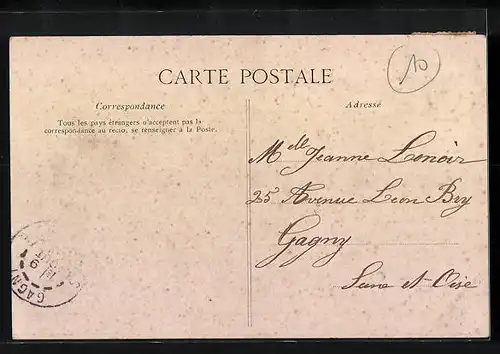 10
CARTE POSTALE
Correspondance
Tous les pays étrangers n'acceptent pas la
correspondance au recto, se renseigner à la Poste.
Adresse
Mdlle Jeanne Lenoir
25 Avenue Léon Bry
Gagny
Seine et Oise
GAGNY